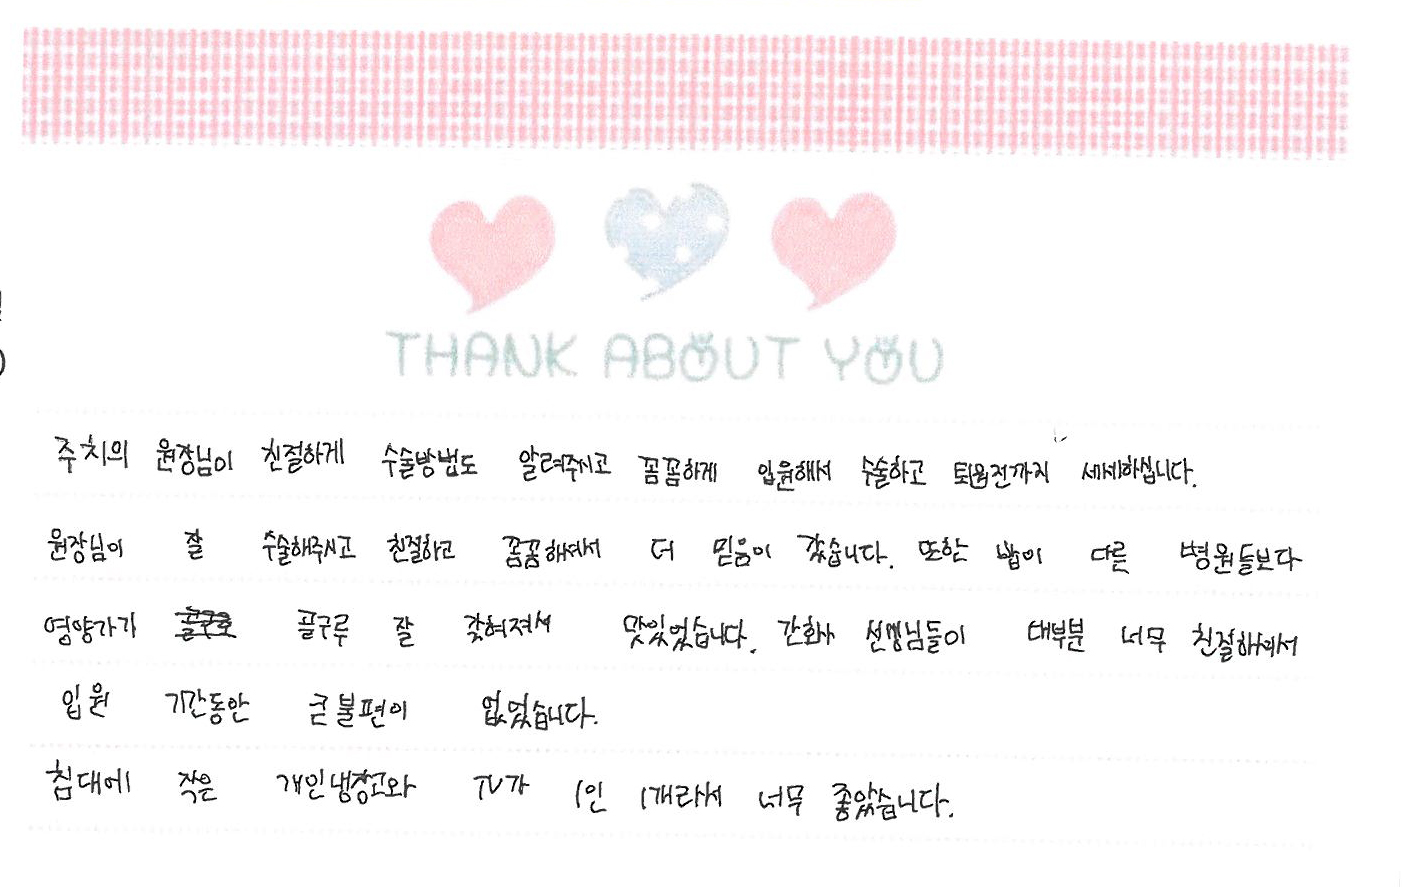 THANK ABOUT YOU
주치의 원장님이 친절하게 수술방법도 알려주시고 꼼꼼하게 입원해서 수술하고 퇴원전까지 세세하십니다.
원장님이 잘 수술해주시고 친절하고 꼼꼼해서 더 믿음이 갔습니다. 또한 밥이 다른 병원들보다
영양가가 골구루 잘 갖혀져서 맛있었습니다. 간호사 선생님들이 대부분 너무 친절하셔서
입원 기간동안 큰 불편이 없었습니다.
침대에 작은 개인냉장고와 TV가 1인 1개라서 너무 좋았습니다.